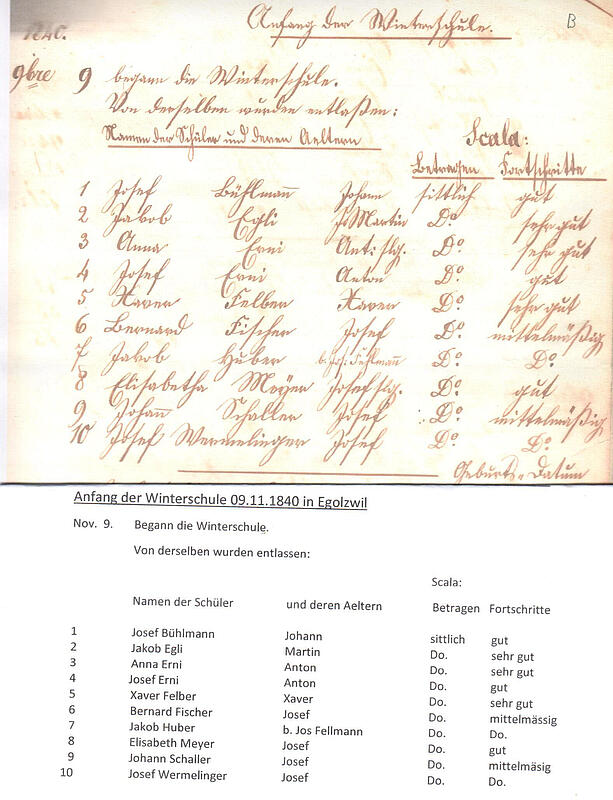 1840.
Anfang der Winterschule. B
9bre 9 begann die Winterschule.
Von derselben wurden entlaßen:
Namen der Schüler und deren Aeltern Scala:
Betragen Fortschritte
1 Josef Bühlmann Johann sittlich gut
2 Jakob Egli Jos Martin Do. sehr gut
3 Anna Erni Ant: slg. Do. sehr gut
4 Josef Erni Anton Do. gut
5 Xaver Felber Xaver Do. sehr gut
6 Bernard Fischer Josef Do. mittelmäßig
7 Jakob Huber b. Jos: Fellmann Do. Do.
8 Elisabetha Meyer Josef slg. Do. gut
9 Johann Schaller Josef Do. mittelmäßig
10 Josef Wermelinger Josef Do. Do.
Geburts-Datum
Anfang der Winterschule 09.11.1840 in Egolzwil
Nov. 9. Begann die Winterschule.
Von derselben wurden entlassen:
Scala:
Namen der Schüler und deren Aeltern Betragen Fortschritte
1 Josef Bühlmann Johann sittlich gut
2 Jakob Egli Martin Do. sehr gut
3 Anna Erni Anton Do. sehr gut
4 Josef Erni Anton Do. gut
5 Xaver Felber Xaver Do. sehr gut
6 Bernard Fischer Josef Do. mittelmässig
7 Jakob Huber b. Jos Fellmann Do. Do.
8 Elisabeth Meyer Josef Do. gut
9 Johann Schaller Josef Do. mittelmäsig
10 Josef Wermelinger Josef Do. Do.